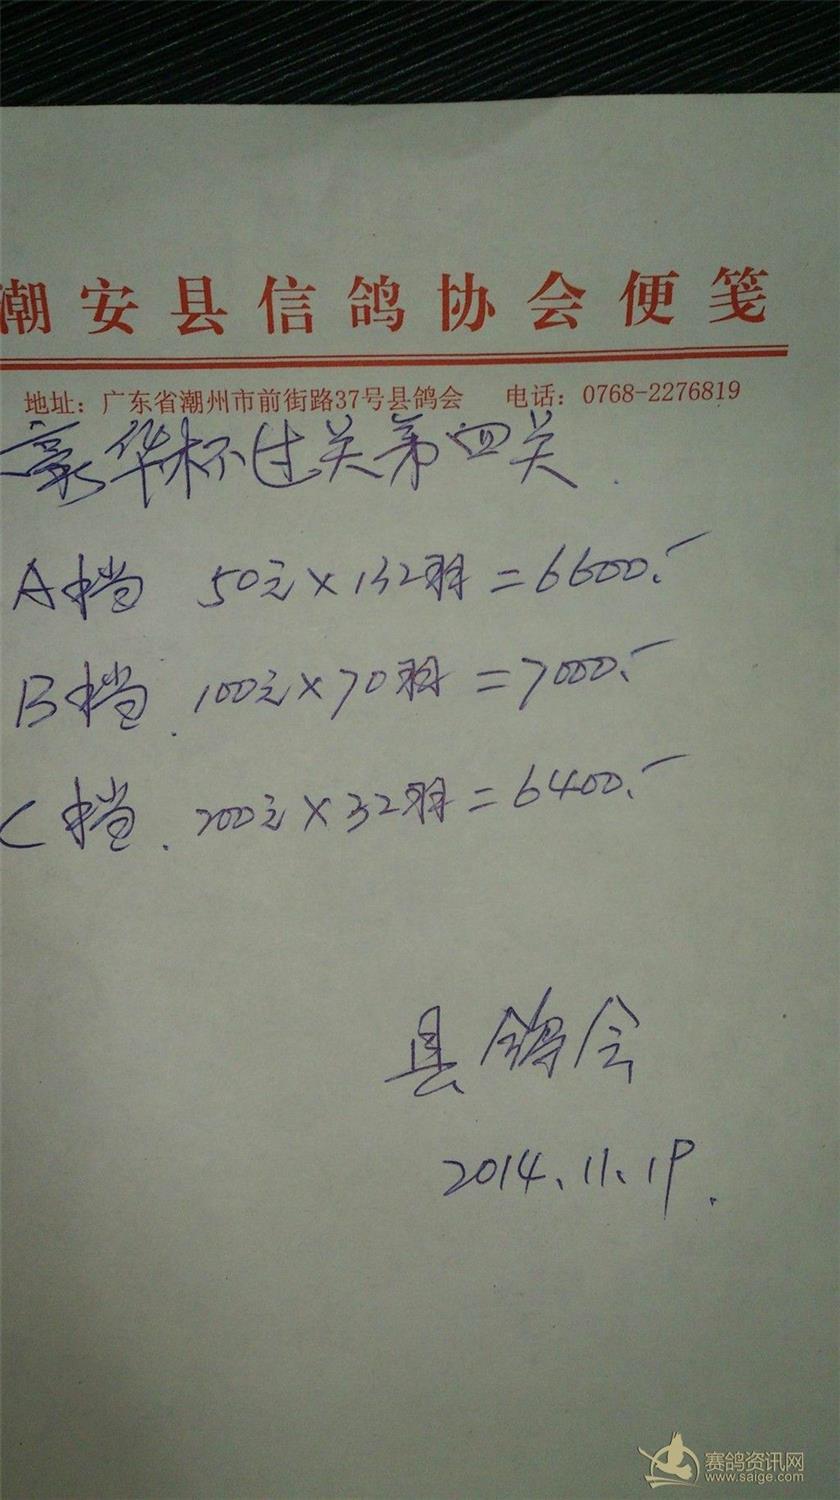 潮安县信鸽协会便笺
地址：广东省潮州市前街路37号县鸽会 电话：0768-2276819
豪华杯过关第四关.
A档 50元×132羽=6600.-
B档.100元×70羽=7000.-
C档.200元×32羽=6400.-
县鸽会
2014、11、19.
赛鸽资讯网
www.saige.com